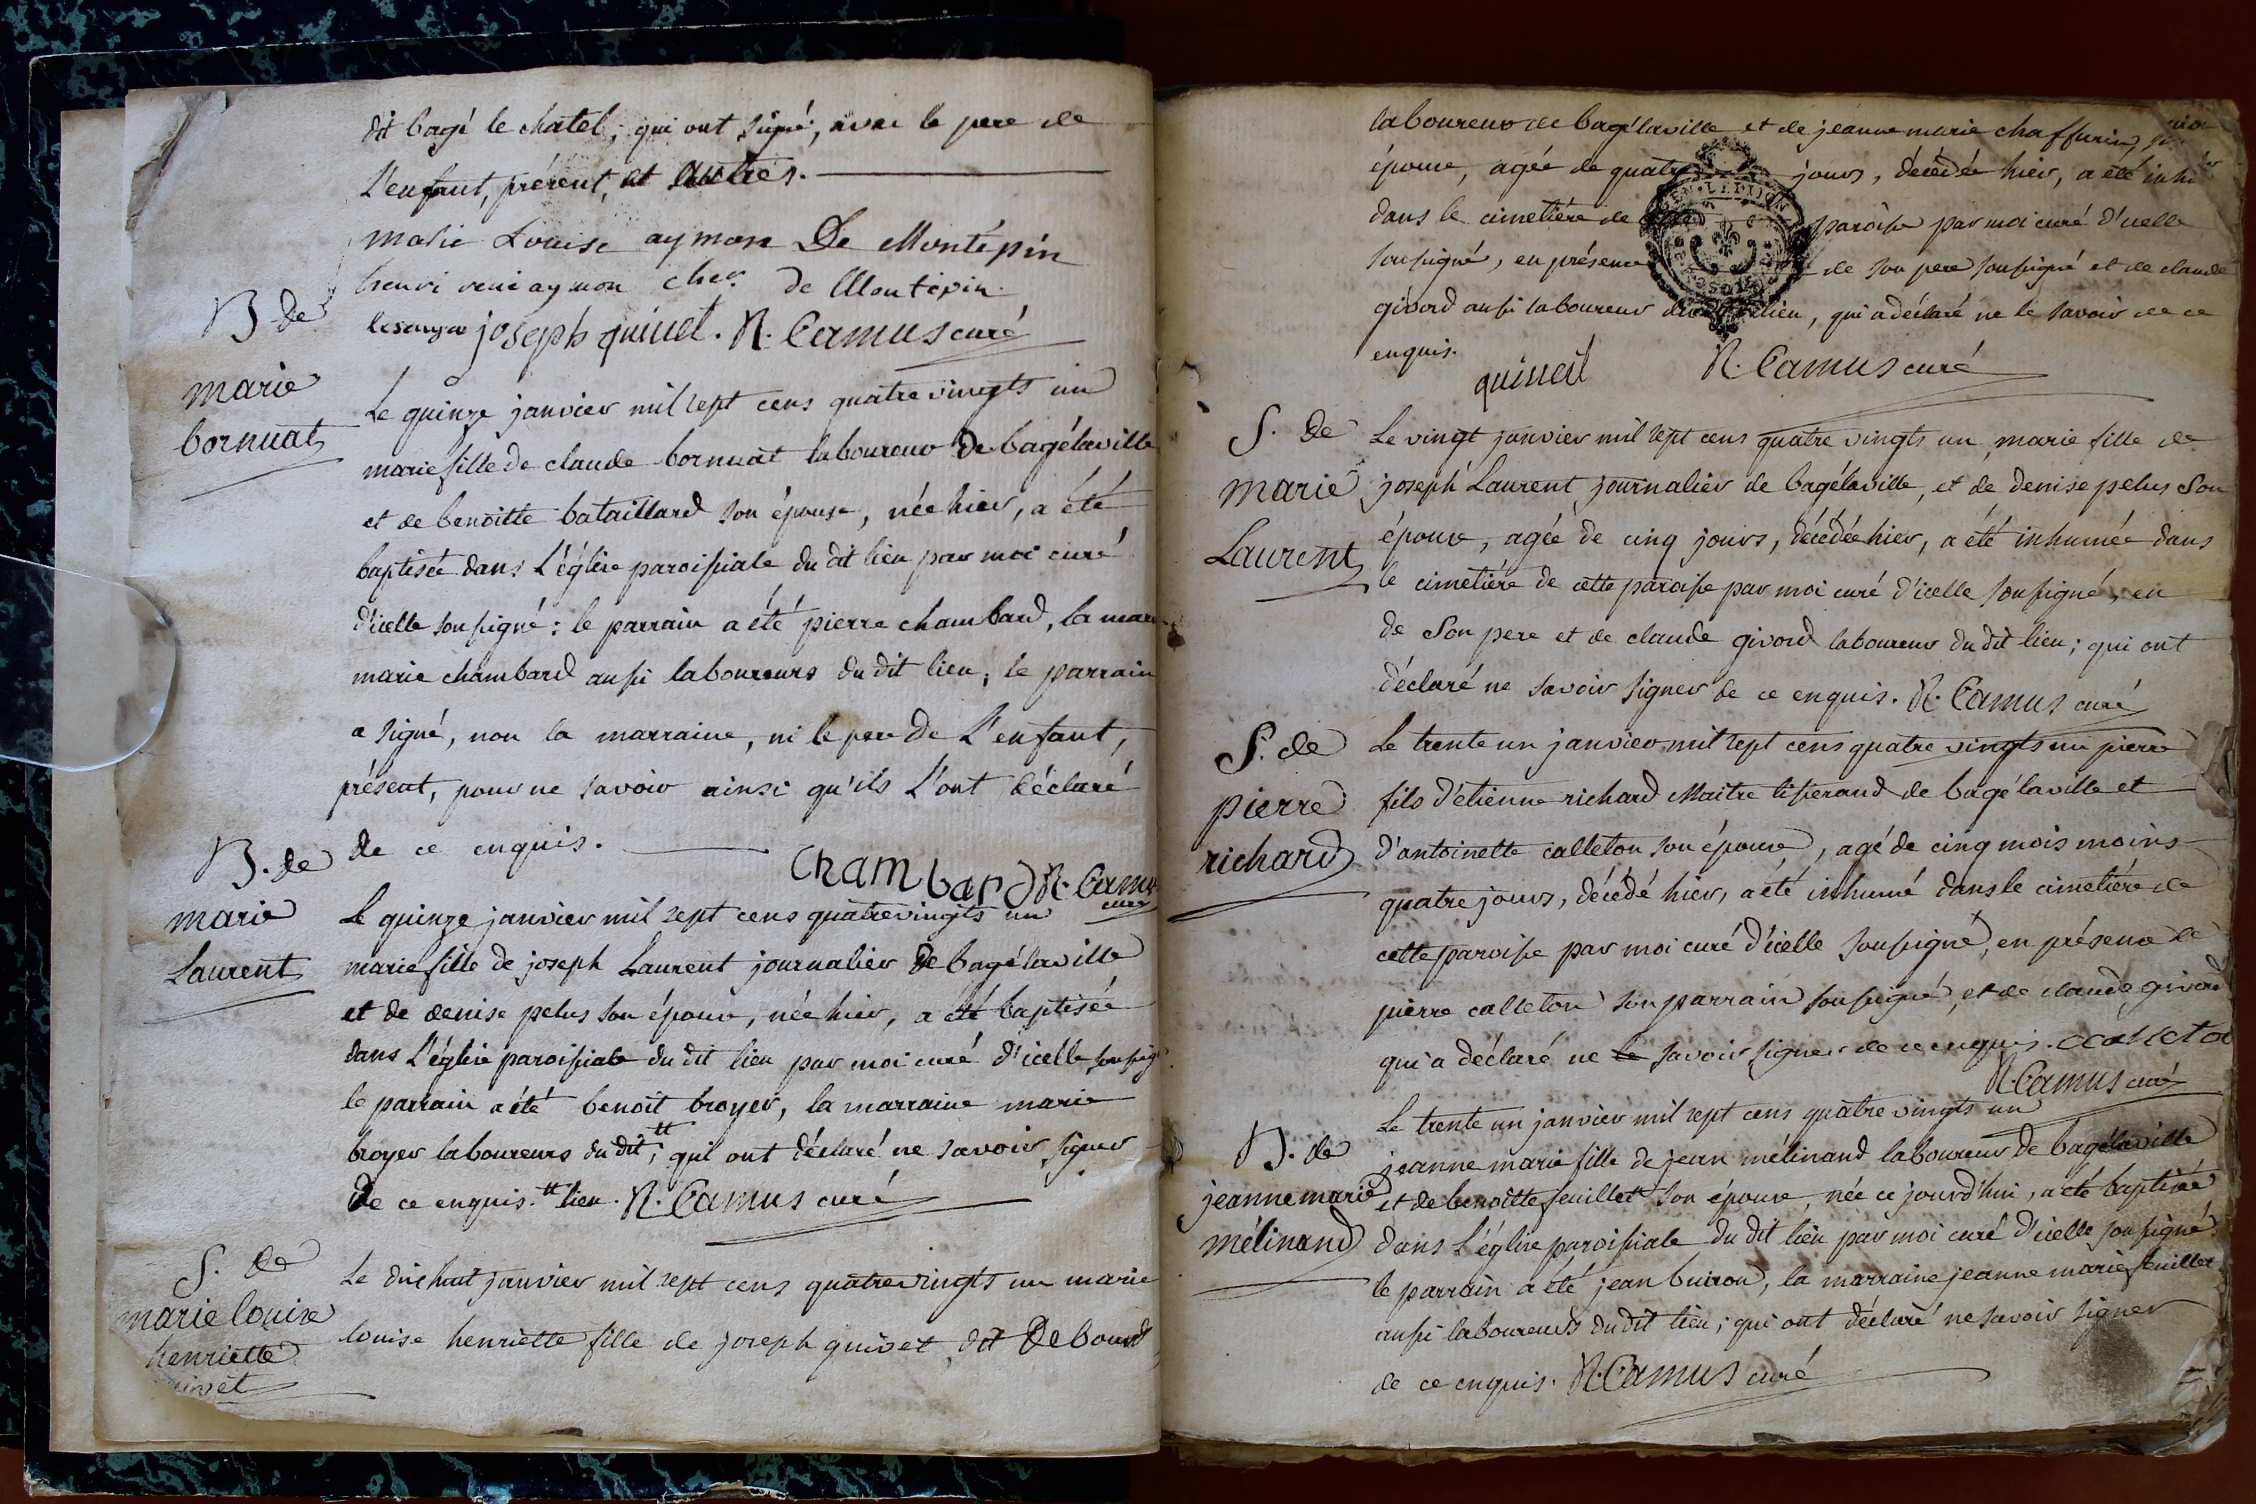 dit bagé le chatel; qui ont signé, avec le pere de
L'enfant, présent, et autres.
marie Louise aymon De Montépin
henri rené aymon cher. de Montépin.
joseph quivet. N. Camus curé
B. de
marie
bornuat
Le quinze janvier mil sept cens quatre vingts un
marie fille de claude bornuat laboureur de bagélaville
et de benoitte bataillard son épouse, née hier, a été
baptisée dans L'église paroissiale du dit lieu par moi curé
d'icelle soussigné: le parrain a été pierre chambard, la mar
marie chambard aussi laboureurs du dit lieu; le parrain
a signé, non la marraine, ni le pere de L'enfant,
présent, pour ne savoir ainsi qu'ils L'ont déclaré
de ce enquis.
Chambard N. Camus
curé
B. de
marie
Laurent
Le quinze janvier mil sept cens quatre vingts un
marie fille de joseph Laurent journalier de bagélaville
et de denise pelus son épouse, née hier, a été baptisée
dans L'église paroissiale du dit lieu par moi curé d'icelle soussig
le parrain a été benoit broyer, la marraine marie
broyer laboureurs du dit tt; qui ont déclaré ne savoir signer
de ce enquis. tt lieu. N. Camus curé
S. de
marie louise
henriette
quivet
Le dixhuit janvier mil sept cens quatre vingts un marie
louise henriette fille de joseph quivet, dit De bourd
laboureur de bagélaville et de jeanne marie chaffurin, son
épouse, agée de quatre jours, décédée hier, a été inh
dans le cimetiére de paroisse par moi curé d'icelle
soussigné, en présence de son pere soussigné et de claude
givord aussi laboureur du dit lieu, qui a déclaré ne le savoir de ce
enquis.
quivet N. Camus curé
S. de
marie
Laurent
Le vingt janvier mil sept cens quatre vingts un, marie fille de
joseph Laurent journalier de bagélaville, et de denise pelus son
épouse, agée de cinq jours, décédée hier, a été inhumée dans
le cimetiére de cette paroisse par moi curé d'icelle soussigné, en
de son pere et de claude givord laboureur du dit lieu; qui ont
déclaré ne savoir signer de ce enquis. N. Camus curé
S. de
pierre
richard
Le trente un janvier mil sept cens quatre vingts un pierre
fils d'étienne richard Maitre tisserand de bagélaville et
d'antoinette calleton son épouse, agé de cinq mois moins
quatre jours, décédé hier, a été inhumé dans le cimetiére de
cette paroisse par moi curé d'icelle soussigné, en présence de
pierre calleton son parrain soussigné, et de claude givord
qui a déclaré ne le savoir signer de ce enquis. calleton
N. Camus curé
B. de
jeanne marie
mélinand
Le trente un janvier mil sept cens quatre vingts un
jeanne marie fille de jean mélinand laboureur de bagélaville
et de benoitte feuillet son épouse, née ce jourd'hui, a été baptisée
dans L'église paroissiale du dit lieu par moi curé d'icelle soussigné
le parrain a été jean buiron, la marraine jeanne marie feuillet
aussi laboureurs du dit lieu; qui ont déclaré ne savoir signer
de ce enquis. N. Camus curé